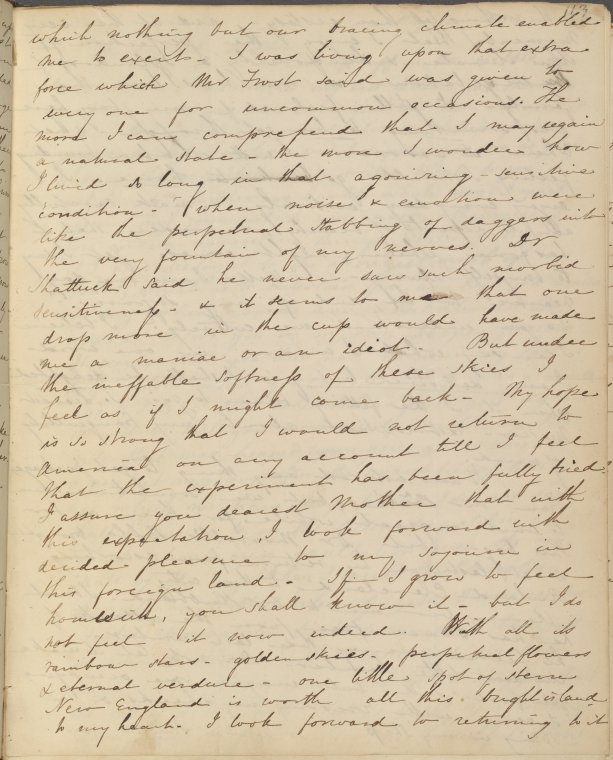 which nothing but our bracing climate enabled
me to exert - I was living upon that extra
force which Mr Frost said was given to
every one for uncommon occasions. The
more I can comprehend that I may regain
a natural state - the more I wonder how
I lived so long in that agonizing - sensitive
condition - when noise & emotion were
like the perpetual stabbing of daggers into
the very fountain of my nerves. Dr
Shattuck said he never saw such morbid
sensitiveness - & it seems to me that one
drop more in the cup would have made
me a maniac or an idiot. But under
the ineffable softness of these skies I
feel as if I might come back - My hope
is so strong that I would not return to
America on any account till I feel
that the experiment has been fully tried.
I assure you dearest Mother that with
this expectation, I look forward with
decided pleasure to my sojourn in
this foreign land - If I grow to feel
homesick, you shall know it - but I do
not feel it now indeed. With all its
rainbow stars - golden skies - perpetual flowers
& eternal verdure - one little spot of stern
New England is worth all this bright island
to my heart. I look forward to returning to it